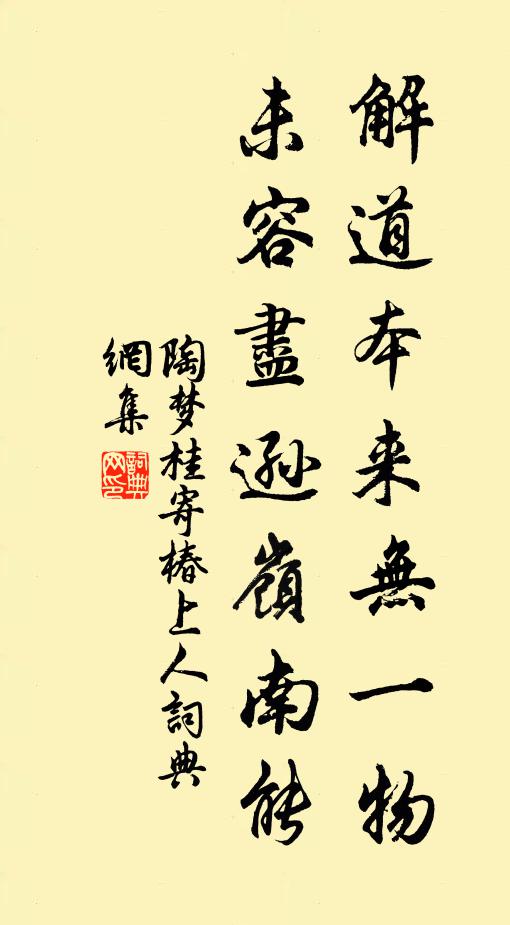 解道本来無一物
未容盡遜嶺南能
陶梦桂寄椿上人詞典
網集
詞典網印